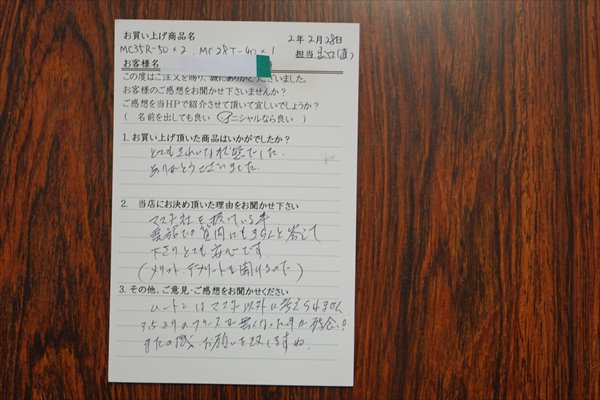 お買い上げ商品名
2年2月28日
MC35R-50×2、MC28T-40×1
担当 (直)
お客様名
この度はご注文を賜り、誠にありがとうございました。
お客様のご感想をお聞かせ下さいませんか？
ご感想を当HPで紹介させて頂いて宜しいでしょうか？
( 名前を出しても良い イニシャルなら良い )
1. お買い上げ頂いた商品はいかがでしたか？
とてもきれいな状態でした。
ありがとうございました。
2. 当店にお決め頂いた理由をお聞かせ下さい
マスダ社を扱っている事
質問にもきちんと答えて
下さりとても安心です。
(メリット、デメリットを聞けるのだ)
3. その他、ご意見・ご感想をお聞かせください
ムートンはマスダ以外に考えられません
無くなった事が残念!!
またの機、お願いを致しますね。